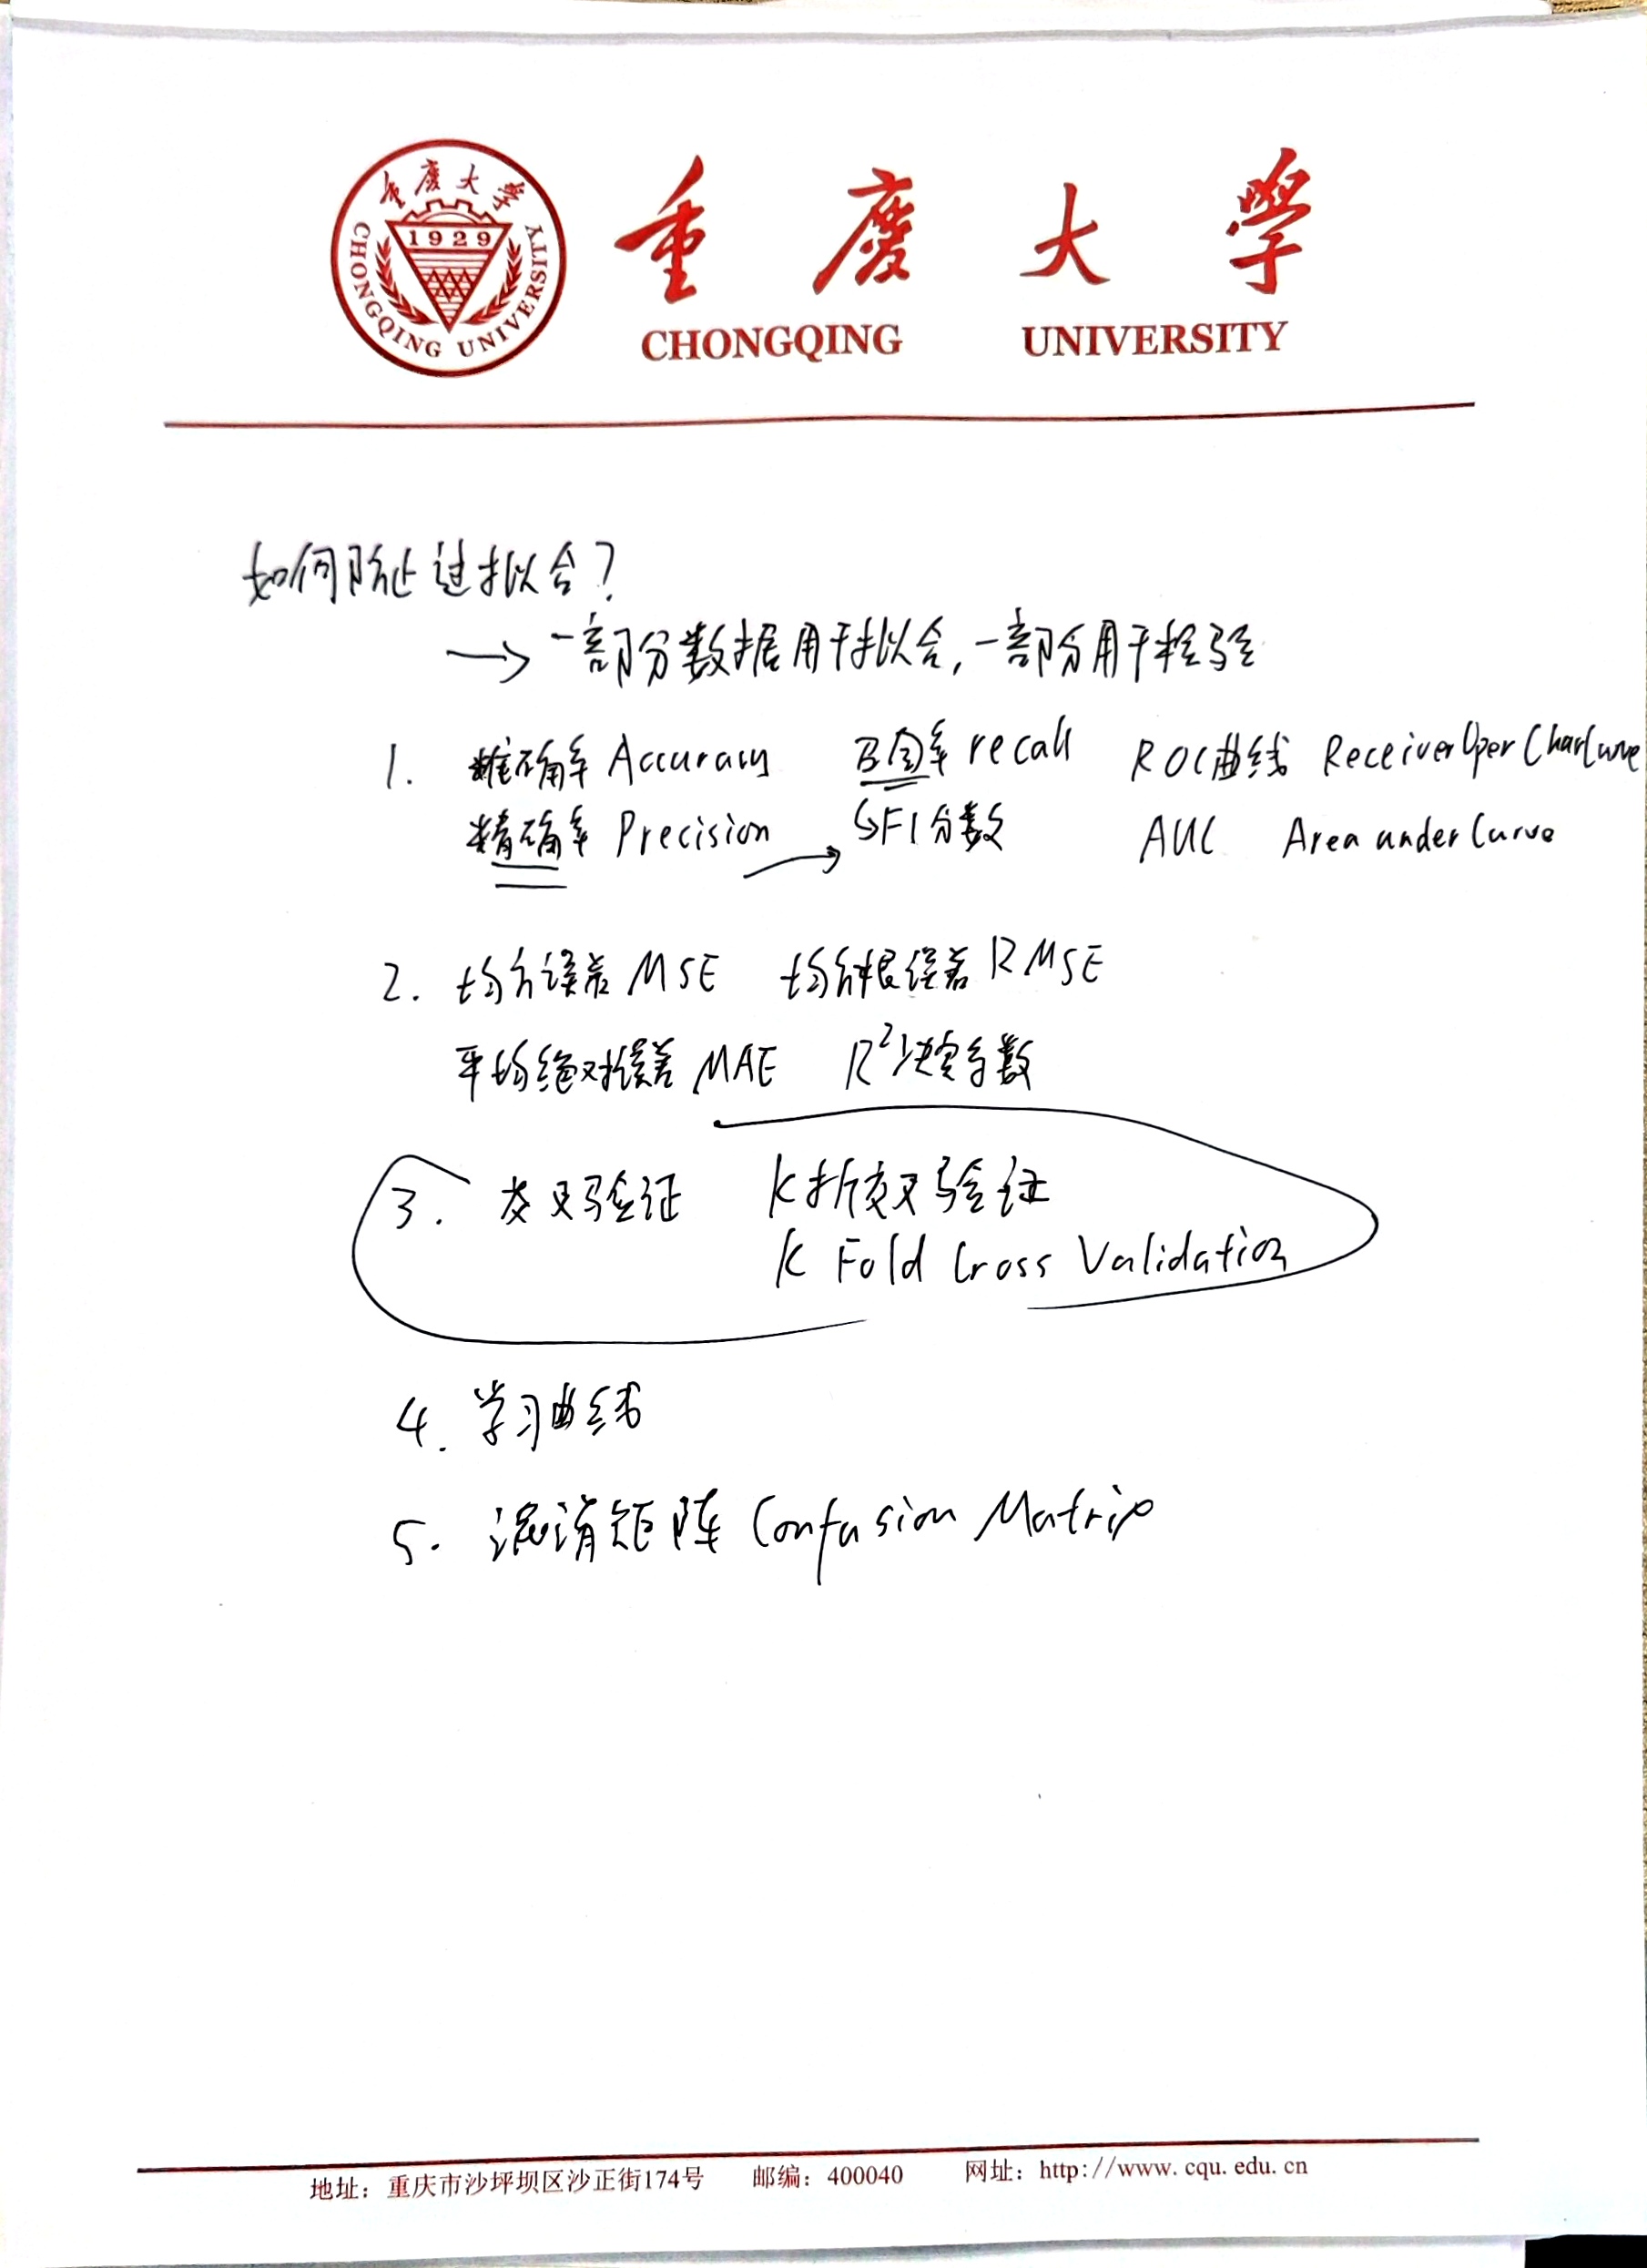 重慶大學
1929
CHONGQING UNIVERSITY
重慶大學
CHONGQING UNIVERSITY
如何防止过拟合?
→一部分数据用于拟合,一部分用于检验
1. 准确率 Accuracy 召回率 recall ROC曲线 ReceiverOperCharCurve
精确率 Precision → ↳F1分数 AUC Area under Curve
2. 均方误差 MSE 均方根误差 RMSE
平均绝对误差 MAE R²决定系数
3. 交叉验证 K折交叉验证
K Fold Cross Validation
4. 学习曲线
5. 混淆矩阵 Confusion Matrix
地址:重庆市沙坪坝区沙正街174号 邮编:400040 网址:http://www.cqu.edu.cn